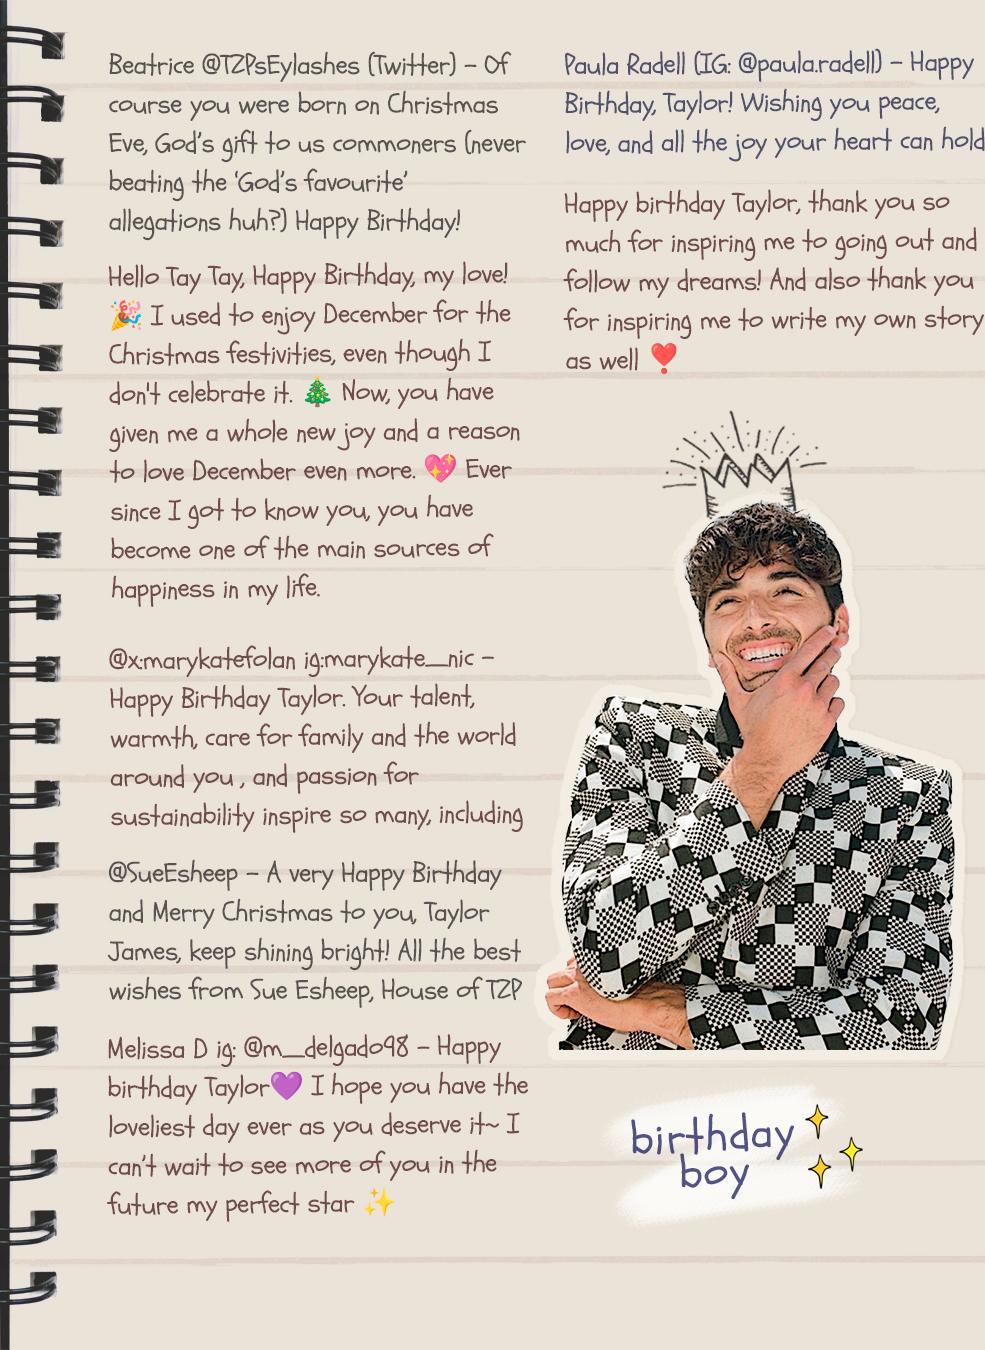 Beatrice @TZPsEylashes (Twitter) – Of
course you were born on Christmas
Eve, God's gift to us commoners (never
beating the ‘God's favourite’
allegations huh?) Happy Birthday!
Hello Tay Tay, Happy Birthday, my love!
🎉 I used to enjoy December for the
Christmas festivities, even though I
don't celebrate it. 🎄 Now, you have
given me a whole new joy and a reason
to love December even more. 💖 Ever
since I got to know you, you have
become one of the main sources of
happiness in my life.
@x:marykatefolan ig:marykate__nic –
Happy Birthday Taylor. Your talent,
warmth, care for family and the world
around you , and passion for
sustainability inspire so many, including
@SueEsheep – A very Happy Birthday
and Merry Christmas to you, Taylor
James, keep shining bright! All the best
wishes from Sue Esheep, House of TZP
Melissa D ig: @m__delgado98 – Happy
birthday Taylor💜 I hope you have the
loveliest day ever as you deserve it~ I
can't wait to see more of you in the
future my perfect star ✨
Paula Radell (IG: @paula.radell) – Happy
Birthday, Taylor! Wishing you peace,
love, and all the joy your heart can hold
Happy birthday Taylor, thank you so
much for inspiring me to going out and
follow my dreams! And also thank you
for inspiring me to write my own story
as well ❣️
birthday
boy